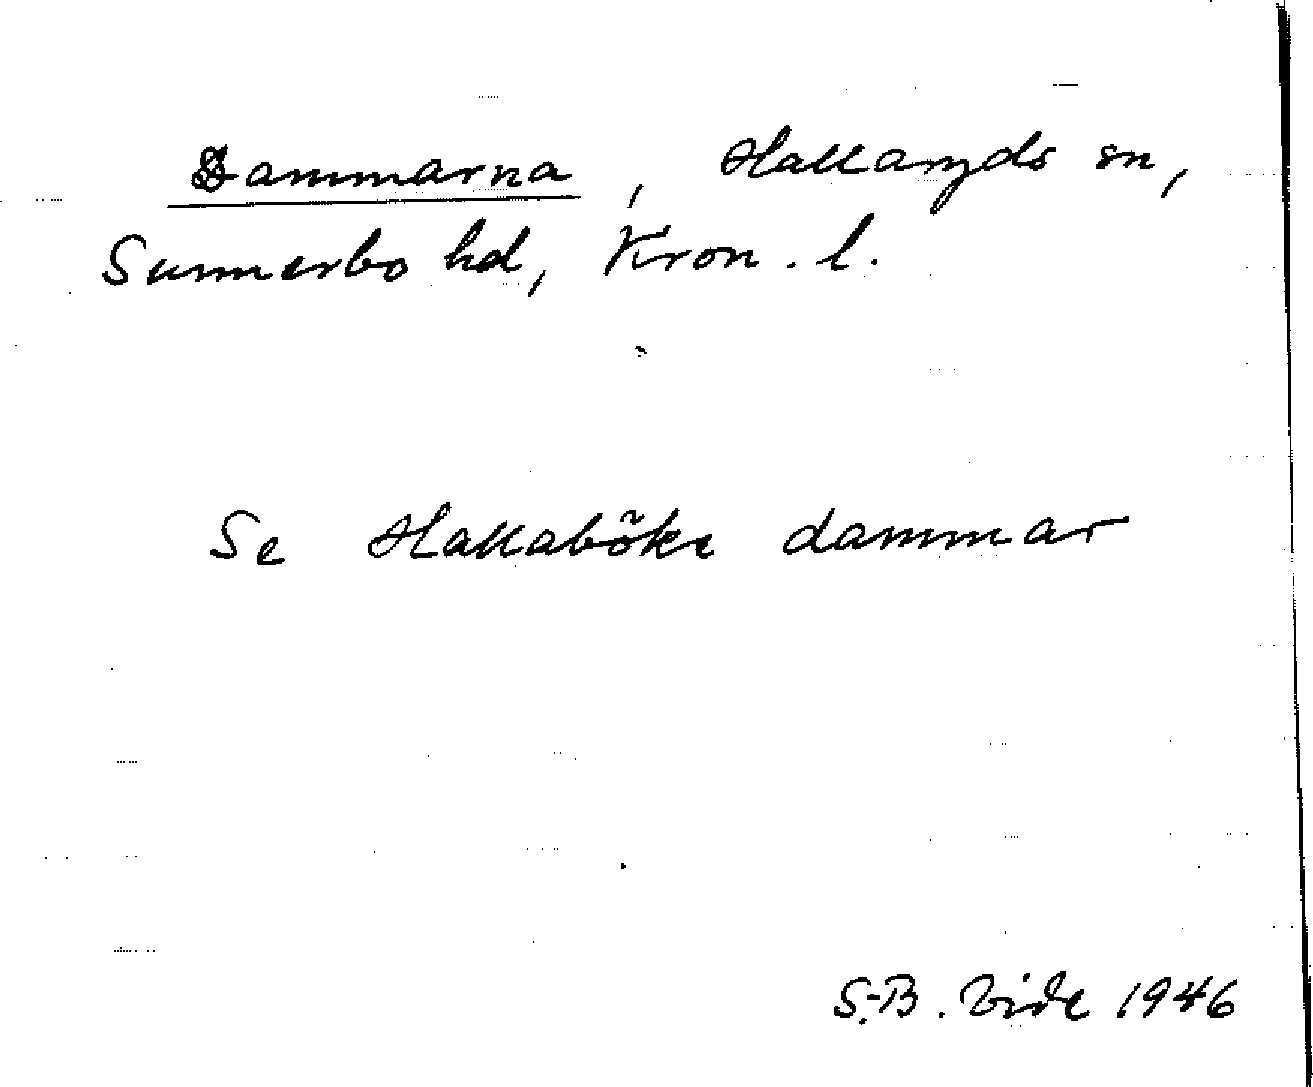 Dammarna, Hallaryds sn,
Sunnerbo hd, Kron. l.
Se Hallaböke dammar
S.-B. Vide 1946